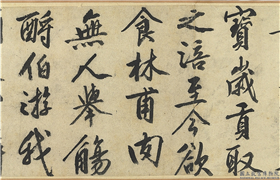 寶歲貢取
之涪至今欲
食林甫肉
無人舉觴
酹伯游我